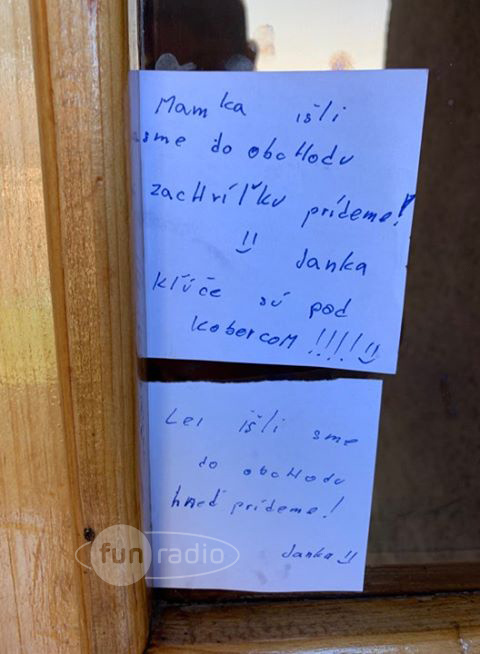 Mamka išli
sme do obcHodu
zacHvíľku prídeme!
Janka
kľúče sú pod
kobercoM !!!!!
Lei išli sme
do obcHodu
hneď prídeme!
Janka
fun radio